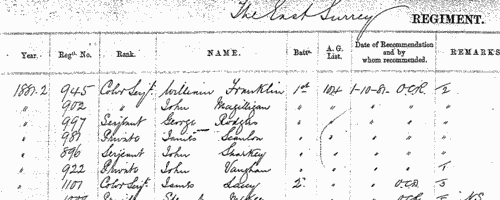 The East Surrey REGIMENT.
Year. Regtl. No. Rank. NAME. Battn. A. G. List. Date of Recommendation and by whom recommended. REMARKS
1881-2 945 Color Serjt. William Franklin 1st 104 1-10-81 O.C.R.
" 902 " John Magilligan " " " "
" 997 Serjeant George Rodgers " " " "
" 987 Private James Scanlon " " "
" 896 Serjeant John Sharkey " " " "
" 922 Private John Vaughan " " " "
" 1101 Color Serjt. James Lacey 2 " " O.C.R.